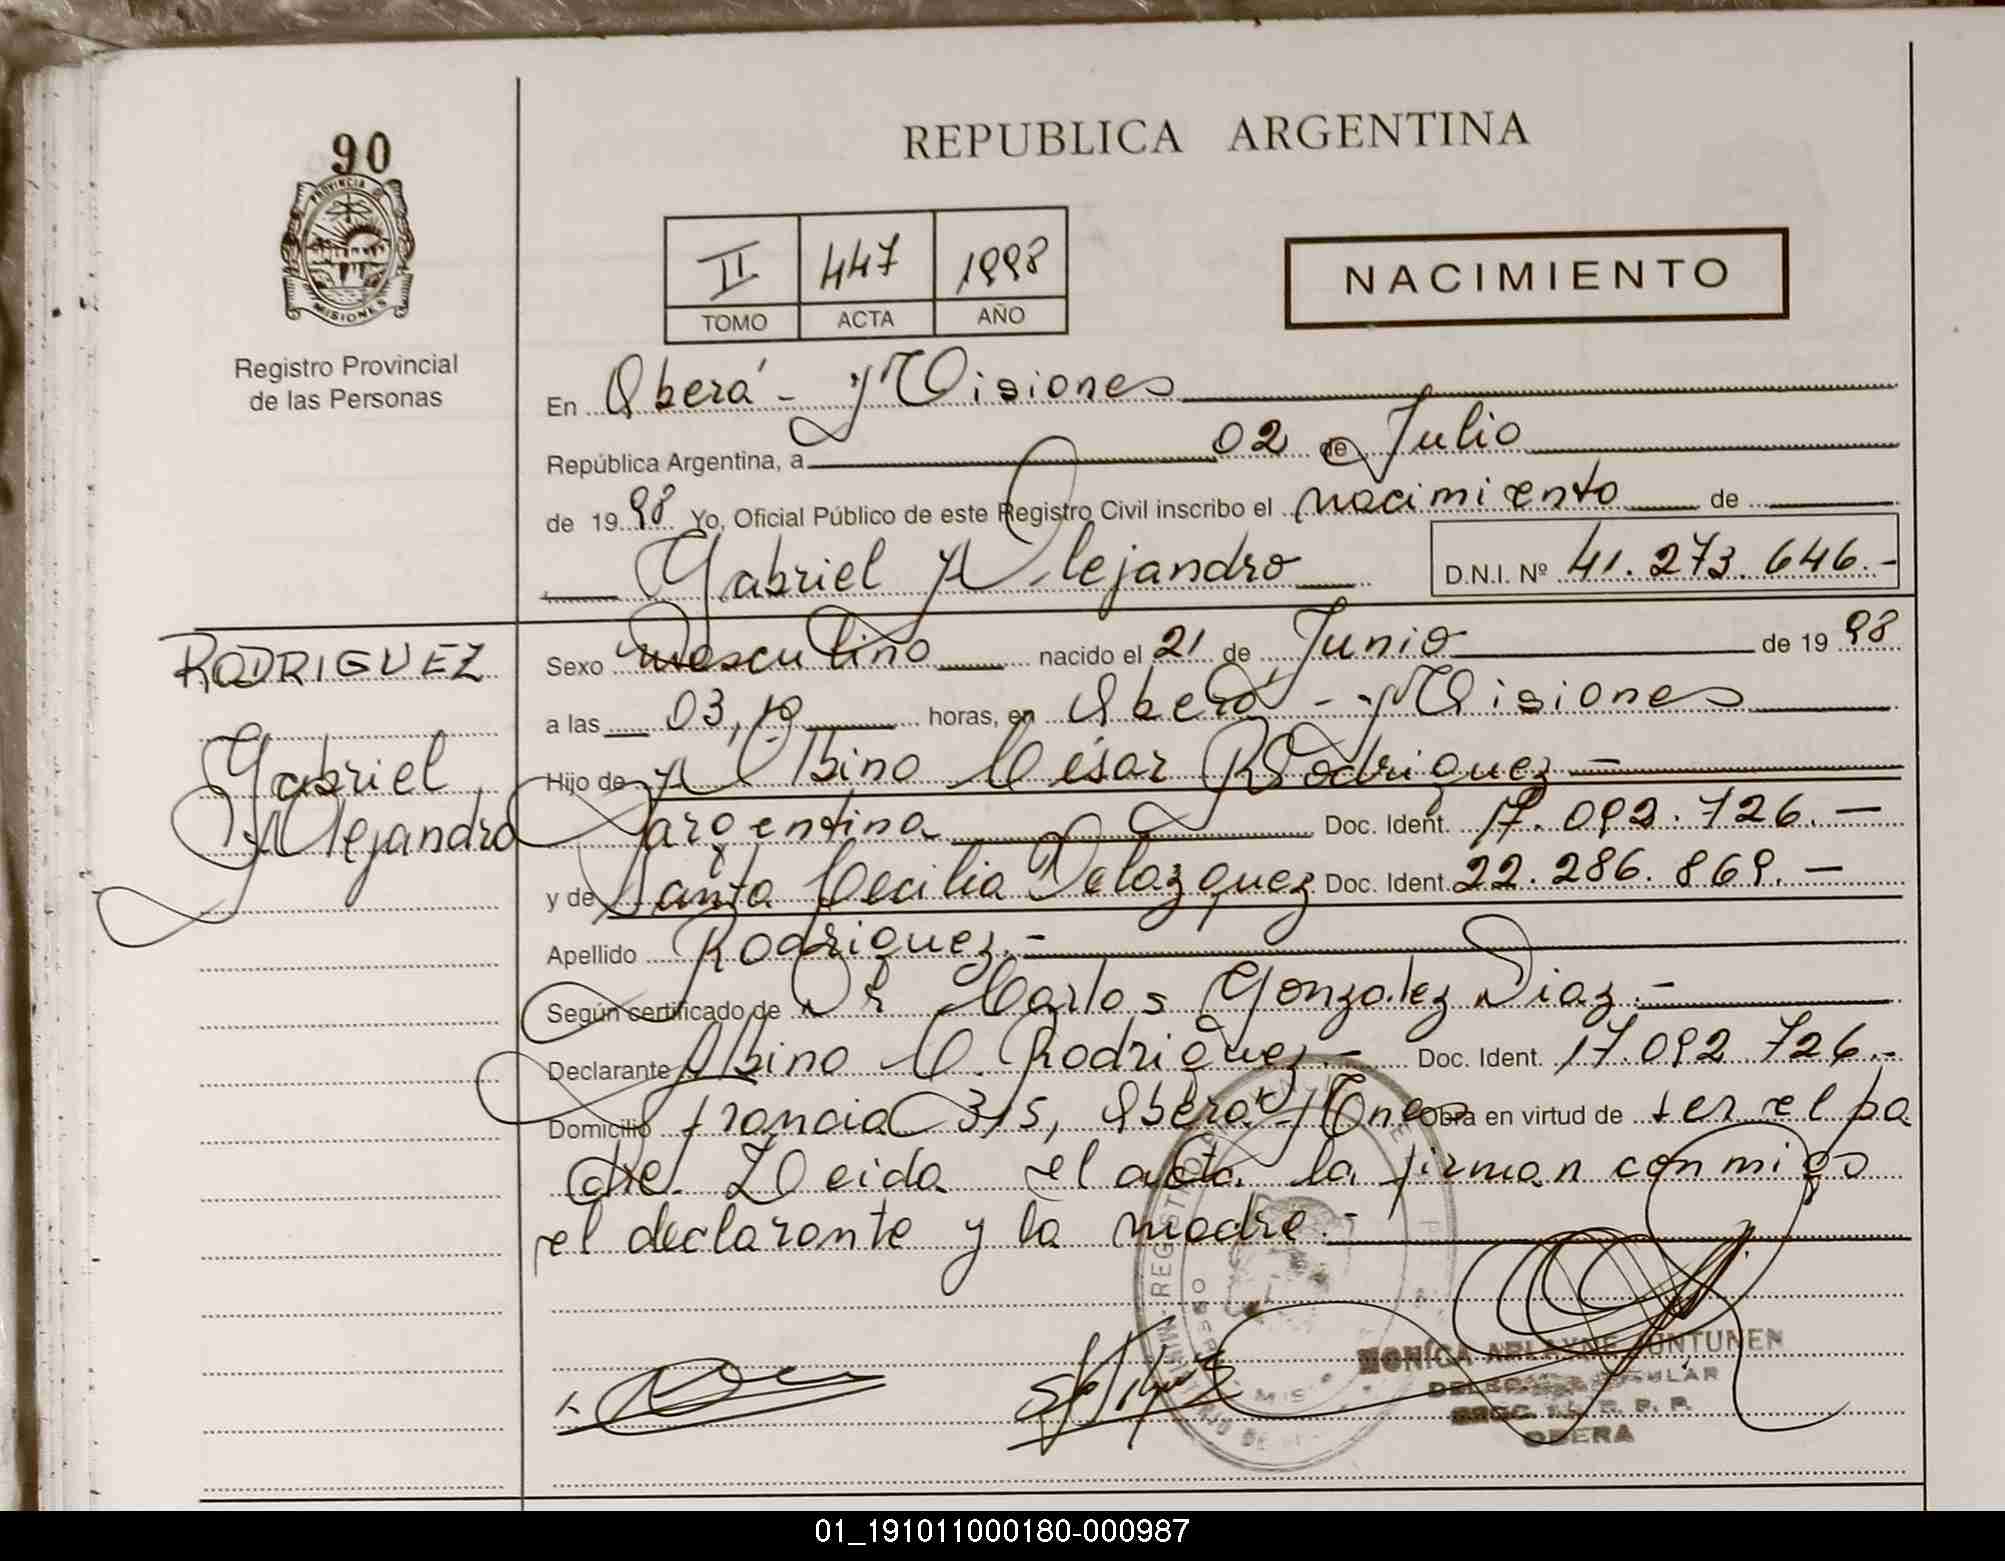 90
PROVINCIA D
MISIONES
Registro Provincial
de las Personas
REPUBLICA ARGENTINA
II 447 1998
TOMO ACTA AÑO
NACIMIENTO
En Oberá - Misiones
República Argentina, a 02 de Julio
de 19 98 Yo, Oficial Público de este Registro Civil inscribo el nacimiento de
Gabriel Alejandro D.N.I. Nº 41.273.646.-
RODRIGUEZ
Gabriel
Alejandro
Sexo masculino nacido el 21 de Junio de 19 98
a las 03,10 horas, en Oberá - Misiones
Hijo de Albino César Rodriguez -
argentina Doc. Ident. 17.092.726.-
y de Santa Cecilia Velazquez Doc. Ident. 22.286.869.-
Apellido Rodriguez.-
Según certificado de Dr Carlos Gonzalez Diaz.-
Declarante Albino C. Rodriguez.- Doc. Ident. 17.092 726.-
Domicilio francia 315, Oberá Mnes Obra en virtud de ser el pa
dre. Leida el acta la firman conmigo
el declarante y la madre.-
MONICA ARLAYNE JUNTUNEN
R. P. P.
OBERA
01_191011000180-000987